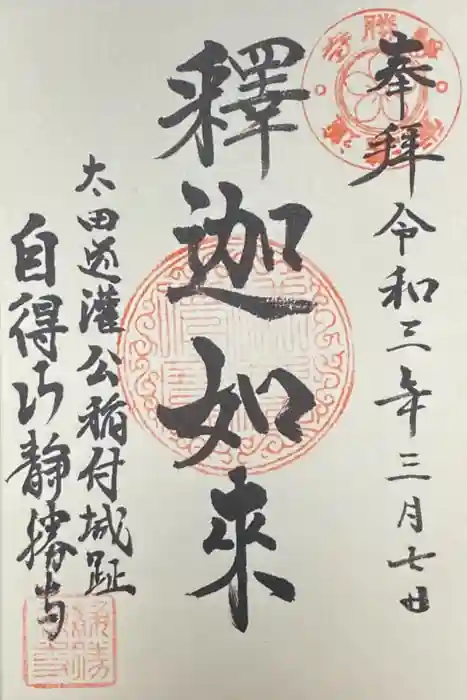 奉拝 令和三年三月七日
釋迦如來
太田道灌公稲付城趾
自得山静勝寺